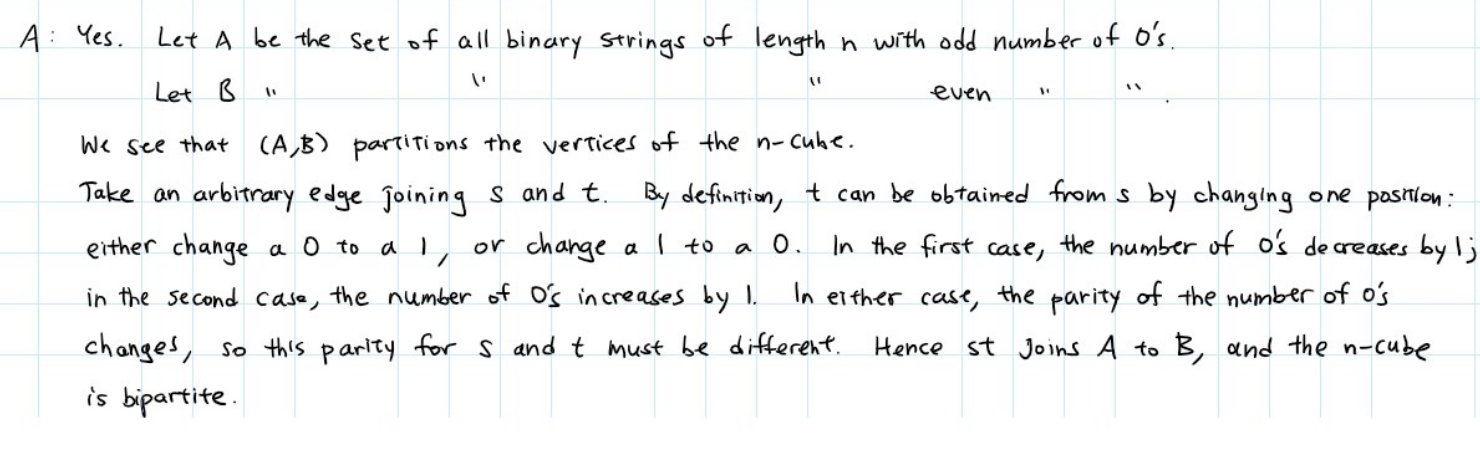 A: Yes. Let A be the set of all binary strings of length n with odd number of 0's.
Let B " " " even " ".
We see that (A,B) partitions the vertices of the n-cube.
Take an arbitrary edge joining s and t. By definition, t can be obtained from s by changing one position:
either change a 0 to a 1, or change a 1 to a 0. In the first case, the number of 0's decreases by 1;
in the second case, the number of 0's increases by 1. In either case, the parity of the number of 0's
changes, so this parity for s and t must be different. Hence st joins A to B, and the n-cube
is bipartite.